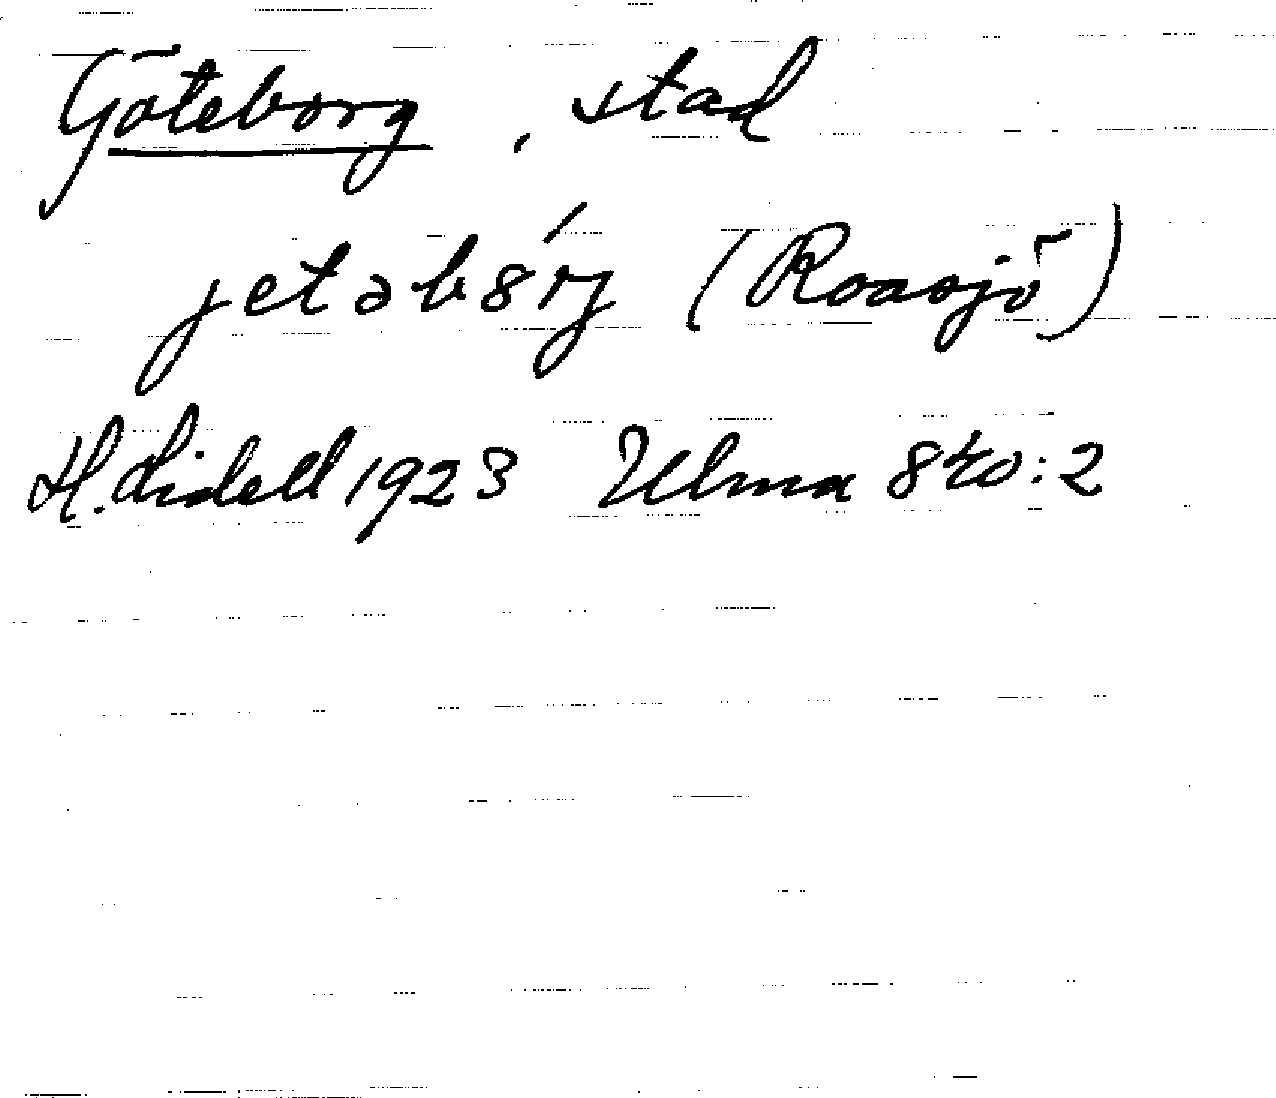 Göteborg, stad
jetəb8ŕj (Roasjö)
H. Lidell 1923 Ulma 840:2